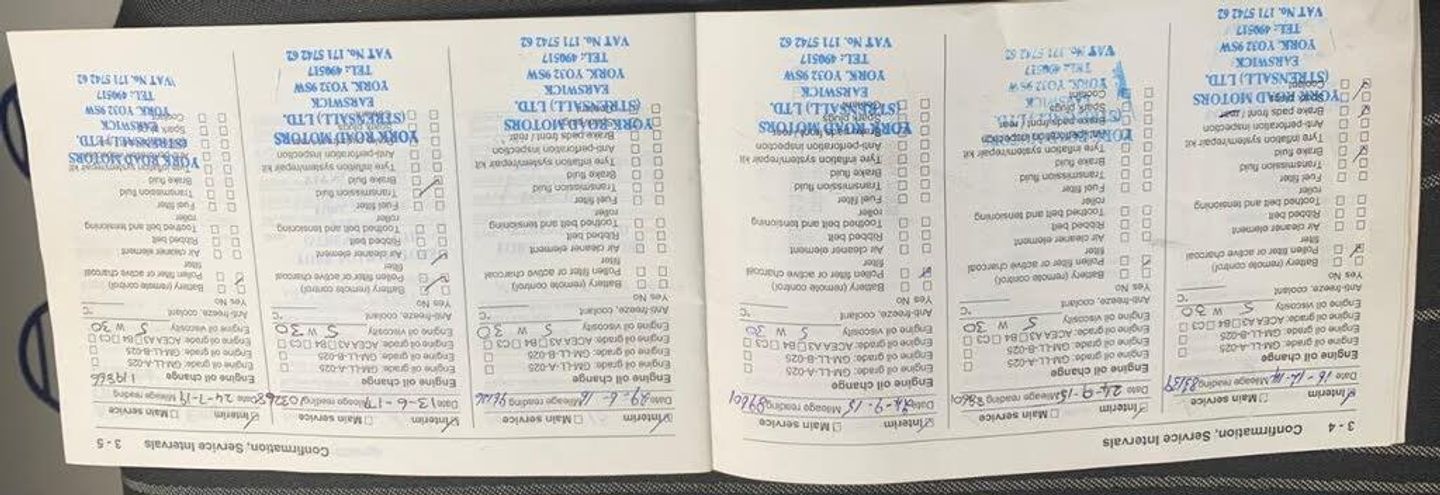 3 - 4 Confirmation, Service Intervals
Interim Main service
Date 16-12-14 Mileage reading 83159
Engine oil change
Engine oil grade: GM-LL-A-025
Engine oil grade: GM-LL-B-025
Engine oil grade: ACEA A3 B4 C3
Engine oil viscosity 5 W 30
Anti-freeze, coolant °C
Yes No
Battery (remote control)
Pollen filter or active charcoal
filter
Air cleaner element
Ribbed belt
Toothed belt and tensioning
roller
Fuel filter
Transmission fluid
Brake fluid
Tyre inflation system/repair kit
Anti-perforation inspection
Brake pads front / rear
YORK ROAD MOTORS
Coolant
(STRENSALL) LTD.
EARSWICK
YORK YO32 9SW
TEL: 490517
VAT No. 171 5742 62
Interim Main service
Date 24-9-15 Mileage reading
Engine oil change
Engine oil grade: GM-LL-A-025
Engine oil grade: GM-LL-B-025
Engine oil grade: ACEA A3 B4 C3
Engine oil viscosity 5 W 30
Anti-freeze, coolant °C
Yes No
Battery (remote control)
Pollen filter or active charcoal
filter
Air cleaner element
Ribbed belt
Toothed belt and tensioning
roller
Fuel filter
Transmission fluid
Brake fluid
Tyre inflation system/repair kit
Anti-perforation inspection
Brake pads front / rear
Spark plugs
Coolant
TEL: 490517
VAT No. 171 5742 62
Interim Main service
Date Mileage reading 89601
Engine oil change
Engine oil grade: GM-LL-A-025
Engine oil grade: GM-LL-B-025
Engine oil grade: ACEA A3 B4 C3
Engine oil viscosity 5 W 30
Anti-freeze, coolant °C
Yes No
Battery (remote control)
Pollen filter or active charcoal
filter
Air cleaner element
Ribbed belt
Toothed belt and tensioning
roller
Fuel filter
Transmission fluid
Brake fluid
Tyre inflation system/repair kit
Anti-perforation inspection
YORK ROAD MOTORS
Spark plugs
(STRENSALL) LTD.
EARSWICK
YORK YO32 9SW
TEL: 490517
VAT No. 171 5742 62
Confirmation, Service Intervals 3 - 5
Interim Main service
Date 29-6-16 Mileage reading
Engine oil change
Engine oil grade: GM-LL-A-025
Engine oil grade: GM-LL-B-025
Engine oil grade: ACEA A3 B4 C3
Engine oil viscosity 5 W 30
Anti-freeze, coolant °C
Yes No
Battery (remote control)
Pollen filter or active charcoal
filter
Air cleaner element
Ribbed belt
Toothed belt and tensioning
roller
Fuel filter
Transmission fluid
Brake fluid
Tyre inflation system/repair kit
Anti-perforation inspection
Brake pads front / rear
YORK ROAD MOTORS
(STRENSALL) LTD.
EARSWICK
YORK YO32 9SW
TEL: 490517
VAT No. 171 5742 62
Interim Main service
Date 13-6-17 Mileage reading 103268
Engine oil change
Engine oil grade: GM-LL-A-025
Engine oil grade: GM-LL-B-025
Engine oil grade: ACEA A3 B4 C3
Engine oil viscosity 5 W 30
Anti-freeze, coolant °C
Yes No
Battery (remote control)
Pollen filter or active charcoal
filter
Air cleaner element
Ribbed belt
Toothed belt and tensioning
roller
Fuel filter
Transmission fluid
Brake fluid
Tyre inflation system/repair kit
Anti-perforation inspection
YORK ROAD MOTORS
Spark plugs
(STRENSALL) LTD.
EARSWICK
YORK YO32 9SW
TEL: 490517
VAT No. 171 5742 62
Interim Main service
Date 24-7-17 Mileage reading
119866
Engine oil change
Engine oil grade: GM-LL-A-025
Engine oil grade: GM-LL-B-025
Engine oil grade: ACEA A3 B4 C3
Engine oil viscosity 5 W 30
Anti-freeze, coolant °C
Yes No
Battery (remote control)
Pollen filter or active charcoal
filter
Air cleaner element
Ribbed belt
Toothed belt and tensioning
roller
Fuel filter
Transmission fluid
Brake fluid
Tyre inflation system/repair kit
YORK ROAD MOTORS
(STRENSALL) LTD.
EARSWICK
YORK YO32 9SW
TEL: 490517
VAT No. 171 5742 62